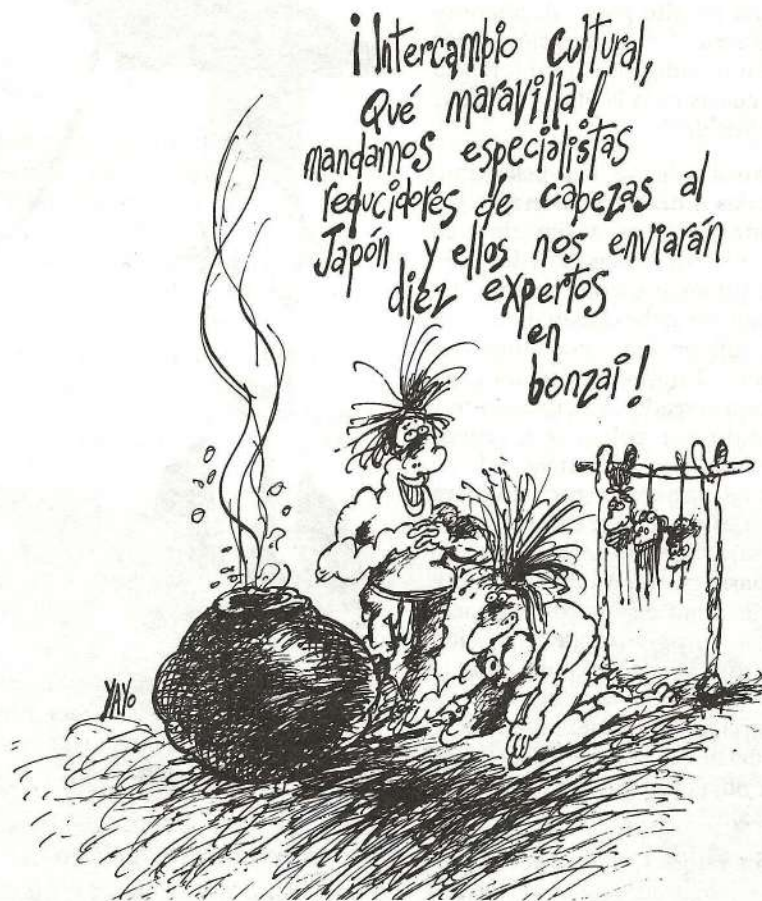 ¡Intercambio Cultural,
Qué maravilla!
mandamos especialistas
reducidores de cabezas al
Japón y ellos nos enviarán
diez expertos
en
bonzai!
YAYO